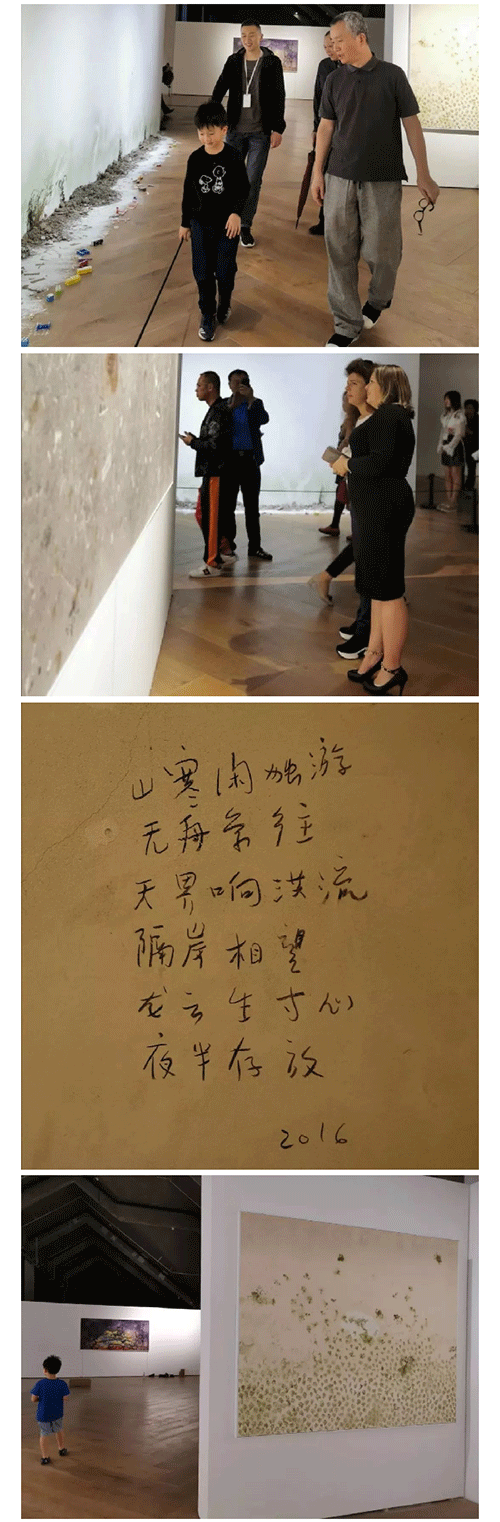 山寒闲独游
无舟往
天界响洪流
隔岸相望
云生寸心
夜半存放
2016